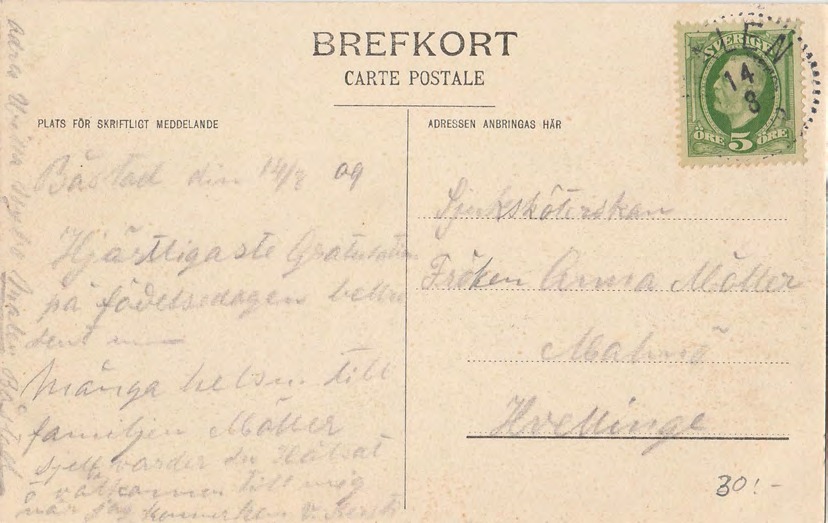 BREFKORT
CARTE POSTALE
PLATS FÖR SKRIFTLIGT MEDDELANDE
ADRESSEN ANBRINGAS HÄR
SVERIGE
ÖRE 5 ÖRE
LEN
14
8
Båstad den 14/8 09
Hjärtligaste Gratulation
på födelsedagen
Många helsn. till
familjen Möller
sjelf varder du Hälsat
o välkommen till mig
när jag kommer hem
Sjuksköterskan
Fröken Anna Möller
Malmö
Hvellinge
30:-
Båstad